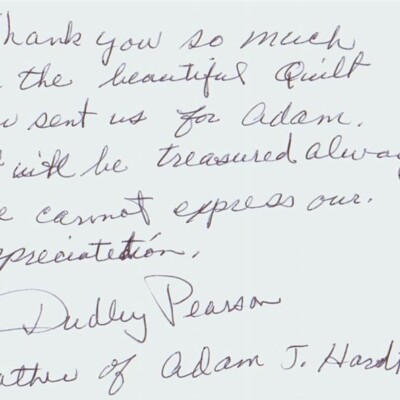 Thank you so much
the beautiful Quilt
sent us for Adam.
will be treasured always
cannot express our.
appreciatetión.
Dudley Pearson
Father of Adam J. Hardi